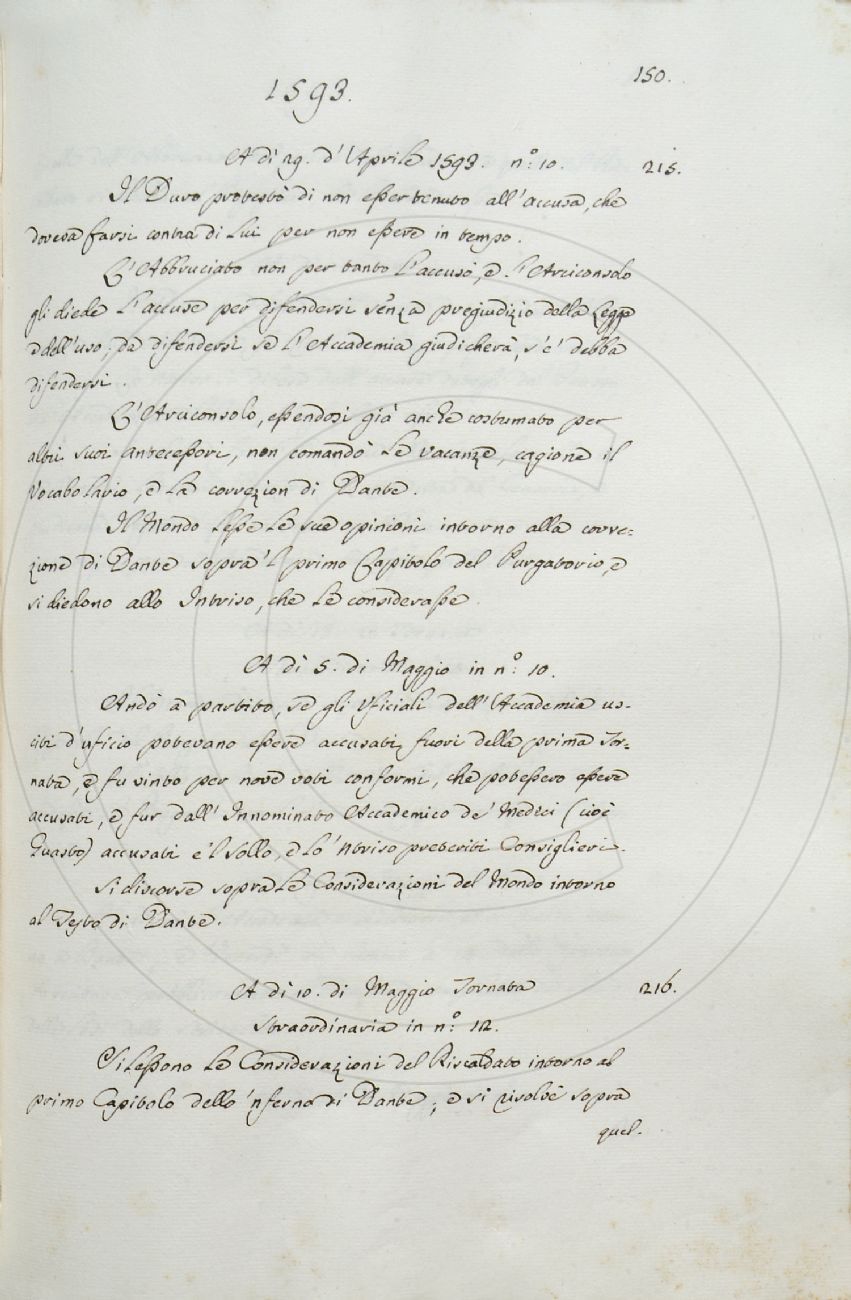 150.
1593.
A dì 29. d'Aprile 1593. n:° 10. 215.
Il Duro protestò di non esser tenuto all'accusa, che
doveva farsi contra di Lui per non essere in tempo.
L'Abbruciato non per tanto l'accusò, e l'Arciconsolo
gli diede l'accuse per difendersi senza pregiudizio della Legge
e dell'uso; da difendersi se l'Accademia giudicherà, s'e' debba
difendersi.
L'Arciconsolo, essendosi già anche costumato per
altri suoi antecessori, non comandò le vacanze, cagione il
Vocabolario, e la correzion di Dante.
Il Mondo lesse le sue opinioni intorno alla corre:
zione di Dante sopra 'l primo Capitolo del Purgatorio, e
si diedono allo Intriso, che le considerasse.
A dì 5. di Maggio in n:° 10.
Andò a partito, se gli Uficiali dell'Accademia us-
citi d'uficio potevano essere accusati fuori della prima Tor:
nata, e fu vinto per nove voti conformi, che potessero essere
accusati, e fur dall'Innominato Accademico de' Medici (cioè
Guasto) accusati e 'l Sollo, e lo 'ntriso preteriti Consiglieri.
Si discorse sopra le Considerazioni del Mondo intorno
al Testo di Dante.
A dì 10. di Maggio Tornata 216.
straordinaria in n:° 12.
Si lessono le Considerazioni del Riscaldato intorno al
primo Capitolo dello 'nferno di Dante; e si risolvè sopra
quel.